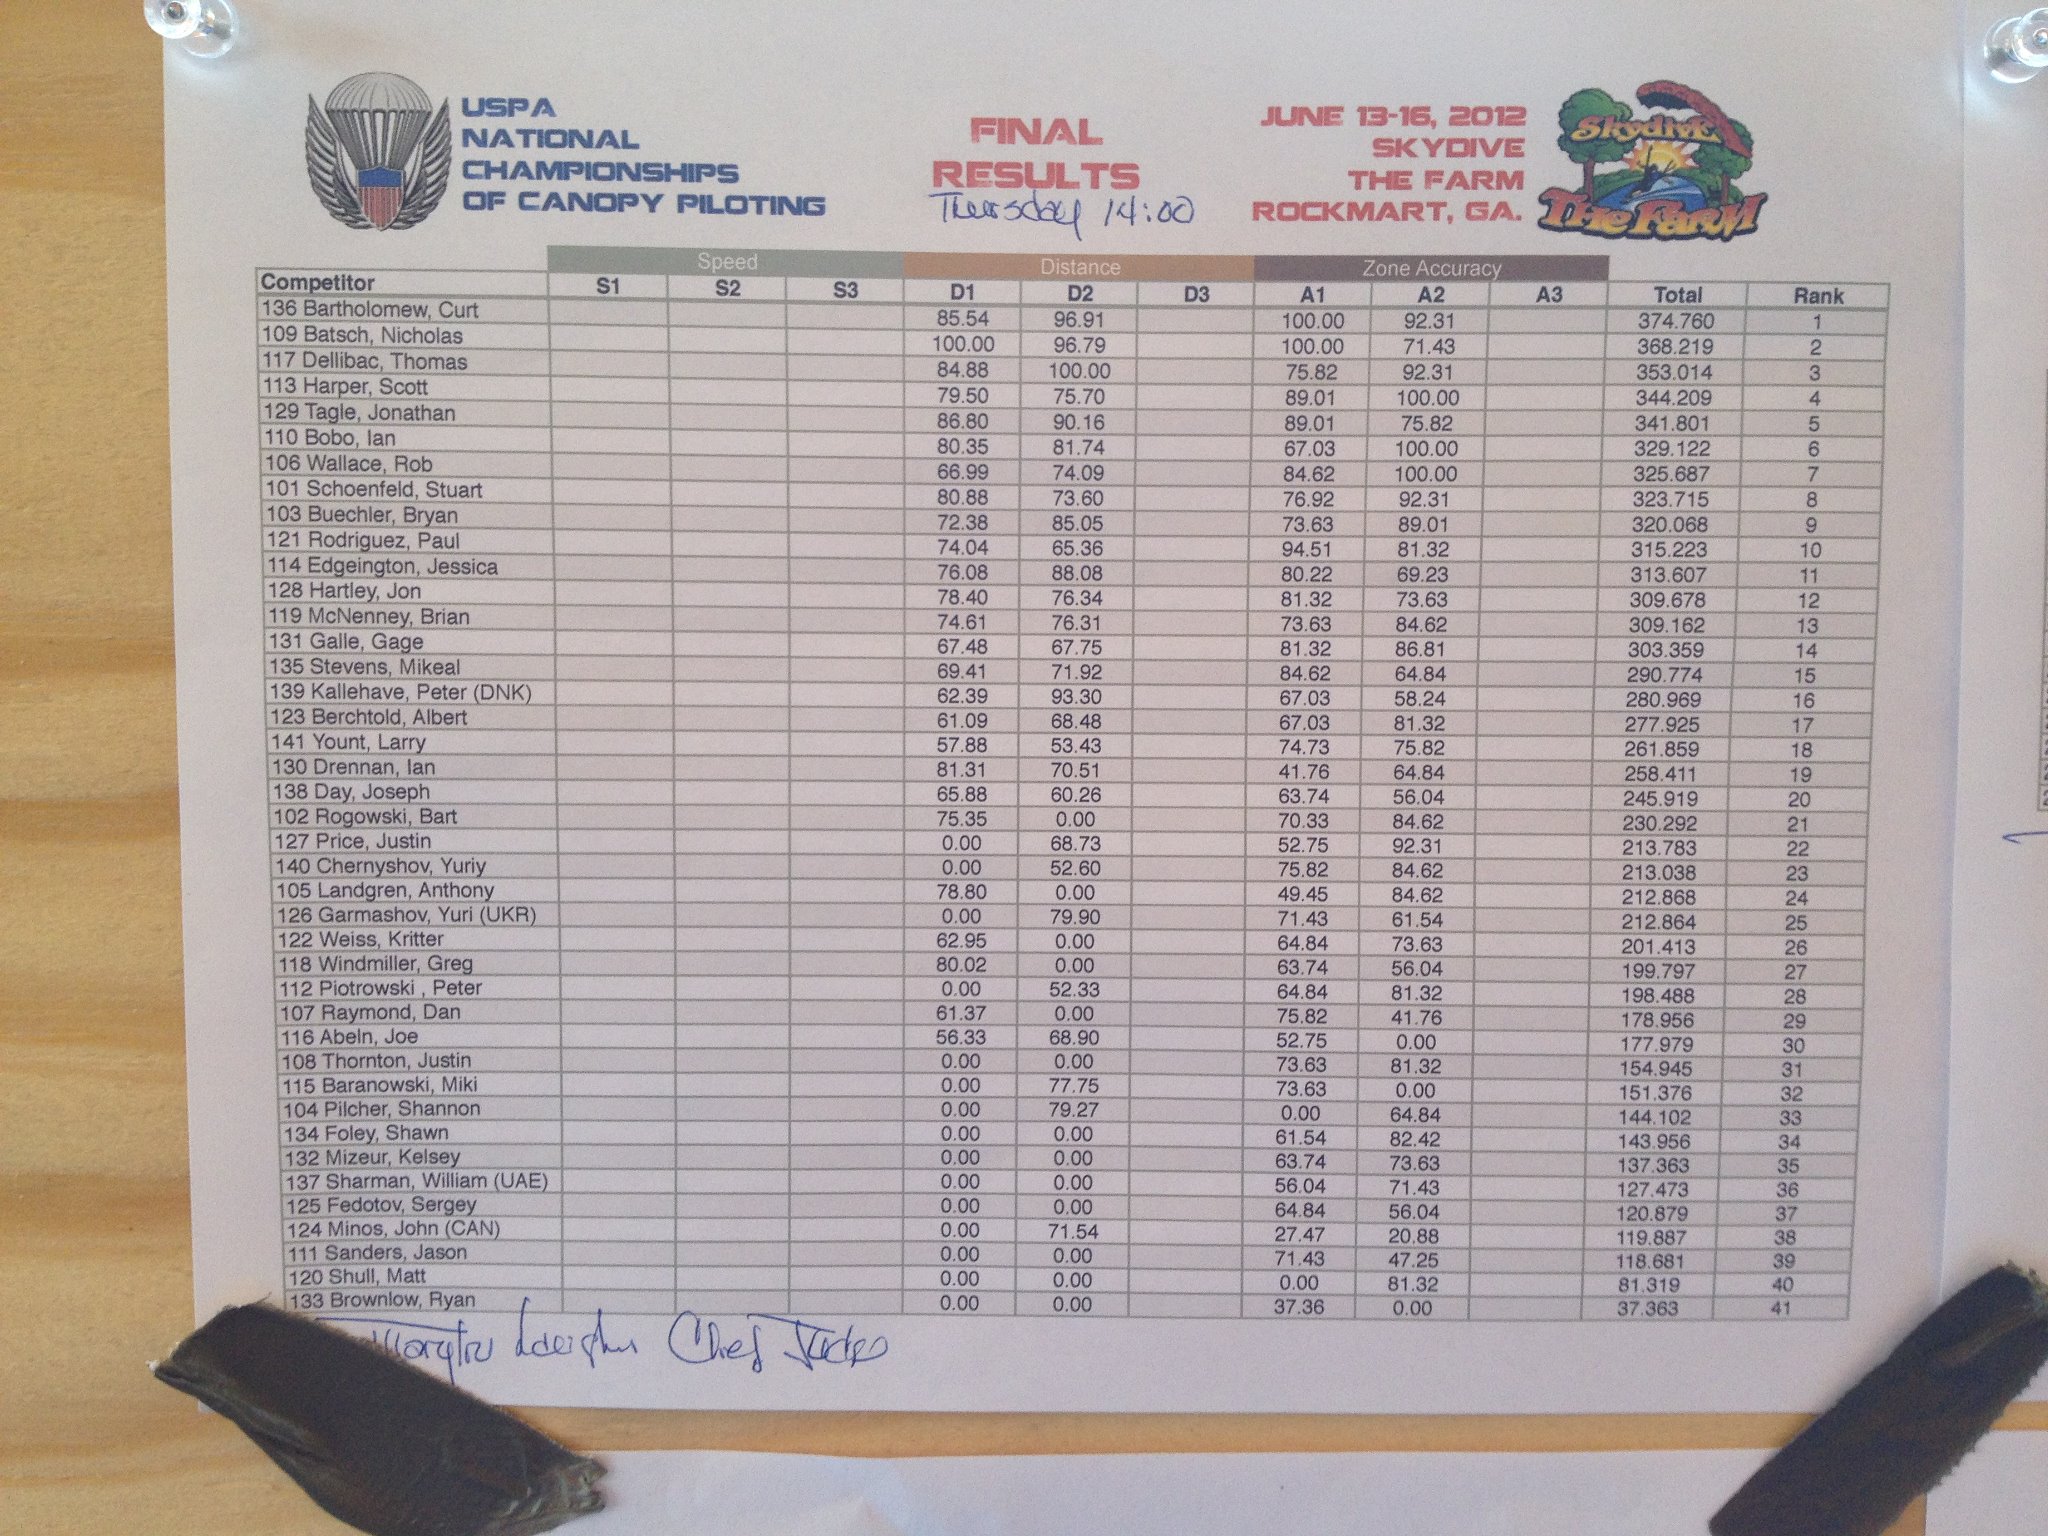 USPA
NATIONAL
CHAMPIONSHIPS
OF CANOPY PILOTING
FINAL
RESULTS
Thursday 14:00
JUNE 13-16, 2012
SKYDIVE
THE FARM
ROCKMART, GA.
Skydive
THE FARM
Speed Distance Zone Accuracy
Competitor S1 S2 S3 D1 D2 D3 A1 A2 A3 Total Rank
136 Bartholomew, Curt 85.54 96.91 100.00 92.31 374.760 1
109 Batsch, Nicholas 100.00 96.79 100.00 71.43 368.219 2
117 Dellibac, Thomas 84.88 100.00 75.82 92.31 353.014 3
113 Harper, Scott 79.50 75.70 89.01 100.00 344.209 4
129 Tagle, Jonathan 86.80 90.16 89.01 75.82 341.801 5
110 Bobo, Ian 80.35 81.74 67.03 100.00 329.122 6
106 Wallace, Rob 66.99 74.09 84.62 100.00 325.687 7
101 Schoenfeld, Stuart 80.88 73.60 76.92 92.31 323.715 8
103 Buechler, Bryan 72.38 85.05 73.63 89.01 320.068 9
121 Rodriguez, Paul 74.04 65.36 94.51 81.32 315.223 10
114 Edgeington, Jessica 76.08 88.08 80.22 69.23 313.607 11
128 Hartley, Jon 78.40 76.34 81.32 73.63 309.678 12
119 McNenney, Brian 74.61 76.31 73.63 84.62 309.162 13
131 Galle, Gage 67.48 67.75 81.32 86.81 303.359 14
135 Stevens, Mikeal 69.41 71.92 84.62 64.84 290.774 15
139 Kallehave, Peter (DNK) 62.39 93.30 67.03 58.24 280.969 16
123 Berchtold, Albert 61.09 68.48 67.03 81.32 277.925 17
141 Yount, Larry 57.88 53.43 74.73 75.82 261.859 18
130 Drennan, Ian 81.31 70.51 41.76 64.84 258.411 19
138 Day, Joseph 65.88 60.26 63.74 56.04 245.919 20
102 Rogowski, Bart 75.35 0.00 70.33 84.62 230.292 21
127 Price, Justin 0.00 68.73 52.75 92.31 213.783 22
140 Chernyshov, Yuriy 0.00 52.60 75.82 84.62 213.038 23
105 Landgren, Anthony 78.80 0.00 49.45 84.62 212.868 24
126 Garmashov, Yuri (UKR) 0.00 79.90 71.43 61.54 212.864 25
122 Weiss, Kritter 62.95 0.00 64.84 73.63 201.413 26
118 Windmiller, Greg 80.02 0.00 63.74 56.04 199.797 27
112 Piotrowski , Peter 0.00 52.33 64.84 81.32 198.488 28
107 Raymond, Dan 61.37 0.00 75.82 41.76 178.956 29
116 Abeln, Joe 56.33 68.90 52.75 0.00 177.979 30
108 Thornton, Justin 0.00 0.00 73.63 81.32 154.945 31
115 Baranowski, Miki 0.00 77.75 73.63 0.00 151.376 32
104 Pilcher, Shannon 0.00 79.27 0.00 64.84 144.102 33
134 Foley, Shawn 0.00 0.00 61.54 82.42 143.956 34
132 Mizeur, Kelsey 0.00 0.00 63.74 73.63 137.363 35
137 Sharman, William (UAE) 0.00 0.00 56.04 71.43 127.473 36
125 Fedotov, Sergey 0.00 0.00 64.84 56.04 120.879 37
124 Minos, John (CAN) 0.00 71.54 27.47 20.88 119.887 38
111 Sanders, Jason 0.00 0.00 71.43 47.25 118.681 39
120 Shull, Matt 0.00 0.00 0.00 81.32 81.319 40
133 Brownlow, Ryan 0.00 0.00 37.36 0.00 37.363 41
Chief Judge